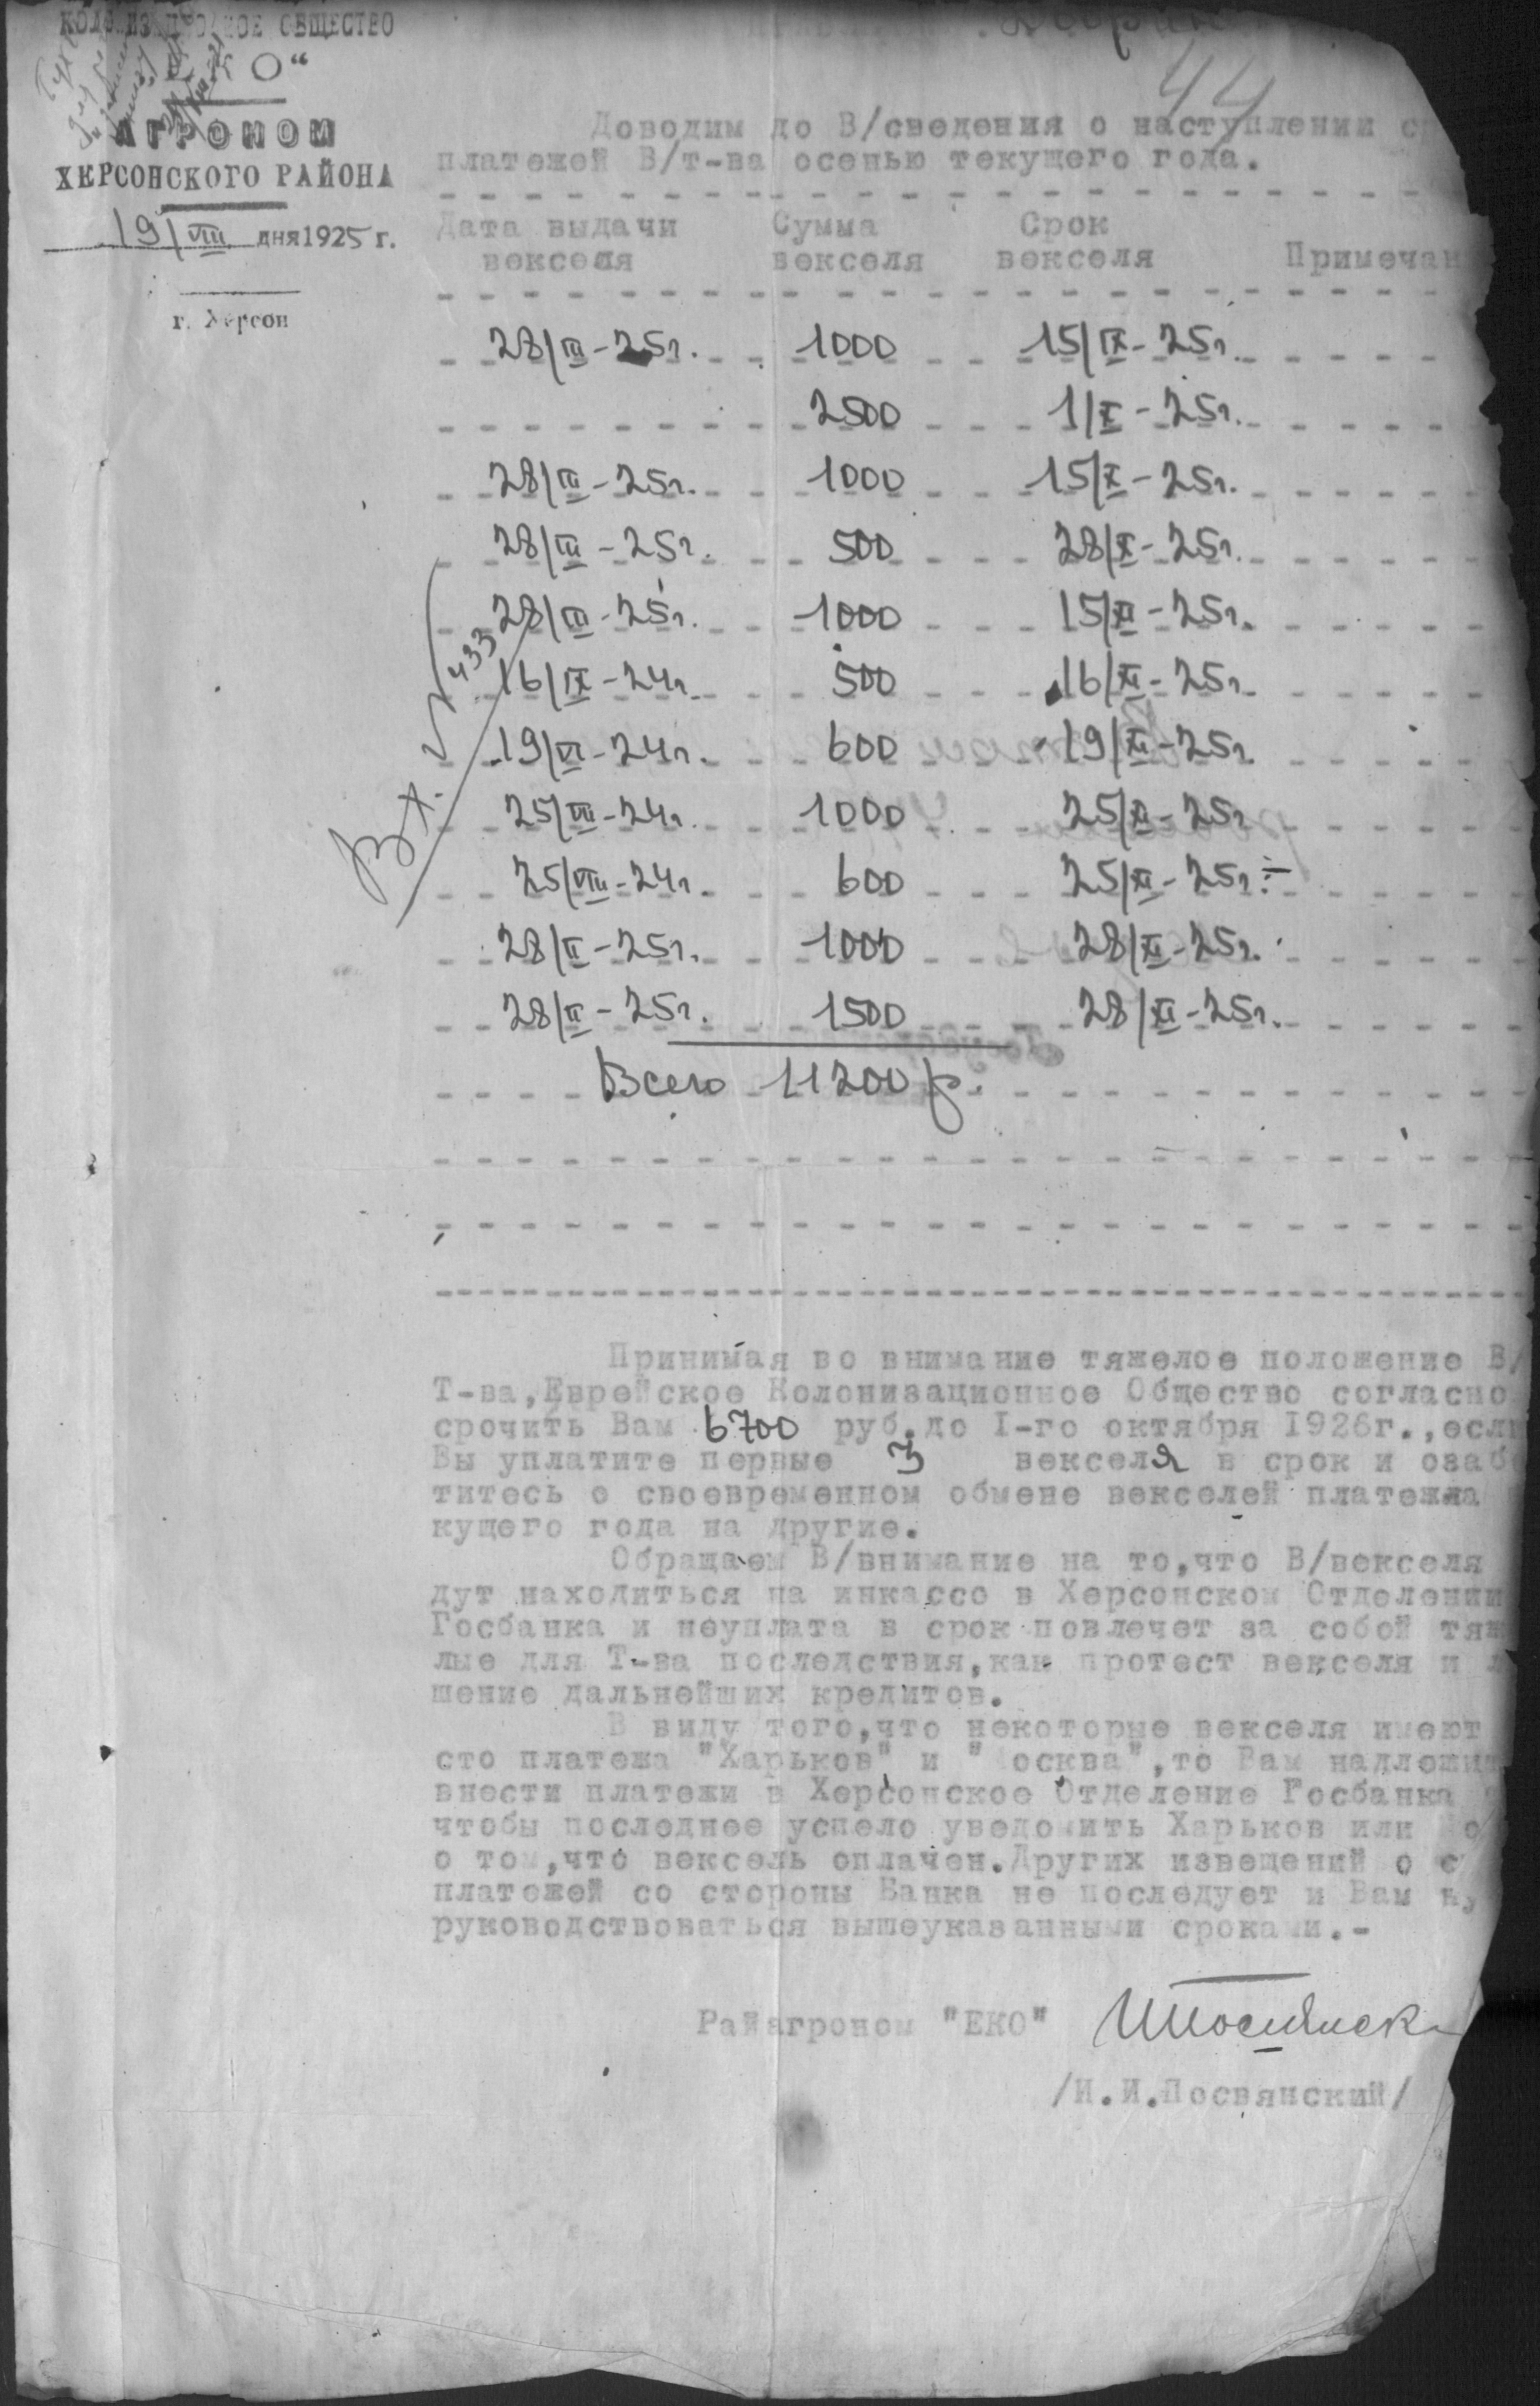 КОЛОНИЗАЦИОННОЕ ОБЩЕСТВО
О"
АГРОНОМ
ХЕРСОНСКОГО РАЙОНА
19/VIII дня 1925 г.
г. Херсон
44
Доводим до В/сведения о наступлении
платежей В/т-ва осенью текущего года.
Дата выдачи Сумма Срок
векселя векселя векселя Примечан
28/III-25г. 1000 15/IX-25г.
2500 1/X-25г.
28/III-25г. 1000 15/X-25г.
28/III-25г. 500 28/X-25г.
28/III-25г. 1000 15/XI-25г.
16/IX-24г. 500 16/XI-25г.
19/VI-24г. 600 19/XI-25г.
25/VIII-24г. 1000 25/XI-25г.
25/VIII-24г. 600 25/XI-25г.
28/II-25г. 1000 28/XI-25г.
28/II-25г. 1500 28/XI-25г.
Всего 11200 р.
Вх. 433
Принимая во внимание тяжелое положение В/
Т-ва,Еврейское Колонизационное Общество согласно
срочить Вам 6700 руб.до I-го октября 1926г.,если
Вы уплатите первые 3 векселя в срок и озаб
титесь о своевременном обмене векселей платежа
кущего года на другие.
Обращаем В/внимание на то,что В/векселя
дут находиться на инкассо в Херсонском Отделении
Госбанка и неуплата в срок повлечет за собой тяж
лые для Т-ва последствия,как протест векселя и л
шение дальнейших кредитов.
В виду того,что некоторые векселя имеют
сто платежа "Харьков" и "Москва",то Вам надлежит
внести платежи в Херсонское Отделение Госбанка
чтобы последнее успело уведомить Харьков или Мо
о том,что вексель оплачен.Других извещений о с
платежей со стороны Банка не последует и Вам ну
руководствоваться вышеуказанными сроками.-
Райагроном "ЕКО"
/И.И.Посвянский/